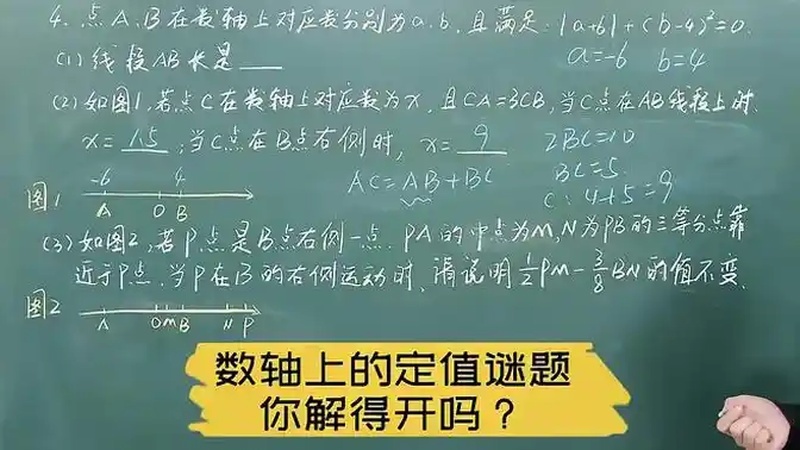 4. 点A、B在数轴上对应数分别为a.b,且满足:|a+6|+(b-4)²=0.
a=-6 b=4
(1)线段AB长是___
(2)如图1,若点C在数轴上对应数为x,且CA=3CB,当C点在AB线段上时.
x=1.5,当C点在B点右侧时,x=9
2BC=10
BC=5
AC=AB+BC
C:4+5=9
图1
-6 4
A O B
(3)如图2,若P点是B点右侧一点.PA的中点为M,N为PB的三等分点靠
近于P点.当P在B的右侧运动时,请说明½PM-⅜BN的值不变.
图2
A O M B N P
数轴上的定值谜题
你解得开吗?